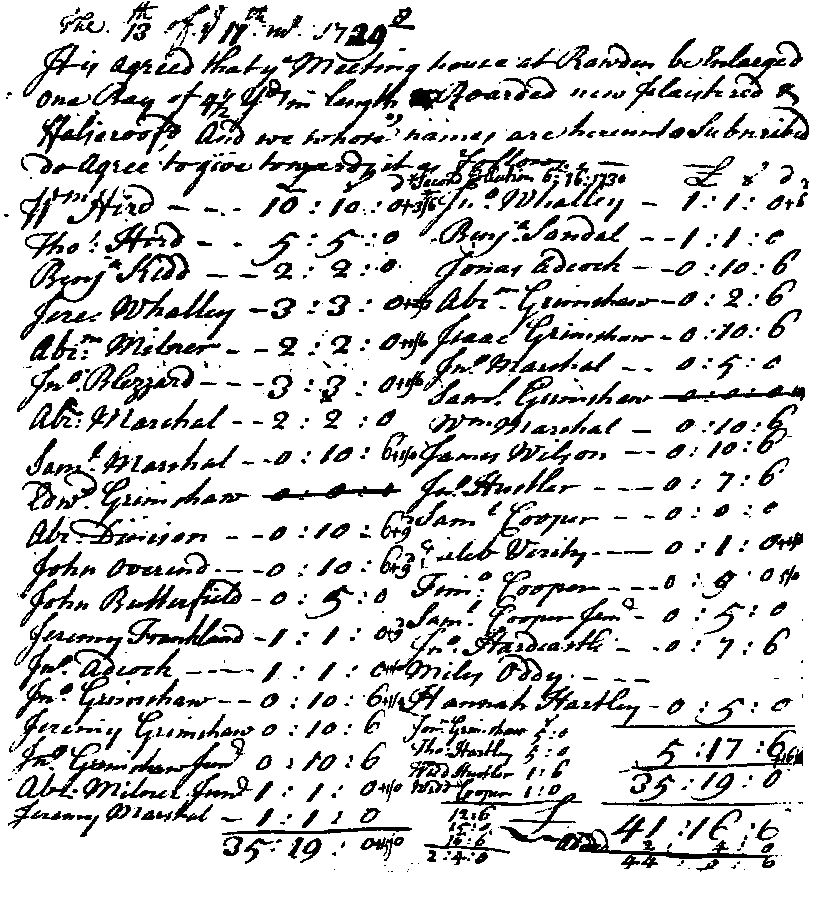 The 13th of ye 11th mo. 1729
It is agreed that ye Meeting house at Rawden be Enlarged
one Bay of 4 1/2 Yds in length Boarded new plaistered &
And we whose names are hereunto Subscribed
do agree to give towards it as follows
Second Collection 6: 16: 1730
£ s d
Wm Hird - - - 10 : 10 : 0
Tho: Hird - - 5 : 5 : 0
Benja Kidd - - 2 : 2 : 0
Jere: Whalley - 3 : 3 : 0
Abrm Milner - - 2 : 2 : 0
Jno Blezzard - - - 3 : 3 : 0
Abr: Marshal - - 2 : 2 : 0
Saml Marshal - - 0 : 10 : 6
Edwd Grimshaw 0 : 0 : 0
Abr: Denison - - 0 : 10 : 6
John Overend - - - 0 : 10 : 6
John Butterfield - 0 : 5 : 0
Jeremy Frankland - 1 : 1 : 0
Jno Adcock - - - - 1 : 1 : 0
Jno Grimshaw - - 0 : 10 : 6
Jeremy Grimshaw 0 : 10 : 6
Jno Grimshaw Junr 0 : 10 : 6
Abr: Milner Junr 1 : 1 : 0
Jeremy Marshal - 1 : 1 : 0
35 : 19 : 0
Jno Whalley - 1 : 1 : 0
Benja Sandal - - 1 : 1 : 0
Jonas Adcock - - 0 : 10 : 6
Abrm Grimshaw - 0 : 2 : 6
Isaac Grimshaw - 0 : 10 : 6
Jno Marshal - - 0 : 5 : 0
Saml Grimshaw 0 : 0 : 0
Wm Marshal - 0 : 10 : 6
James Wilson - - 0 : 10 : 6
Jno Hustler - - - 0 : 7 : 6
Saml Cooper - - 0 : 0 : 0
Caleb Verity - - - 0 : 1 : 0
Cooper - - - 0 : 9 : 0
Saml Cooper - 0 : 5 : 0
Jno Hardcastle - - 0 : 7 : 6
Miles Oddy - - - -
Hannah Hartley - 0 : 5 : 0
Jon: Grimshaw 5 : 0
Tho: Hartley 5 : 0
Widd Hustler 1 : 6
Widd Cooper 1 : 0
12 : 6
15 : 0
16 : 6
2 : 4 : 0
5 : 17 : 6
35 : 19 : 0
£ 41 : 16 : 6
Added 2 : 4 : 0
44 : 0 : 6